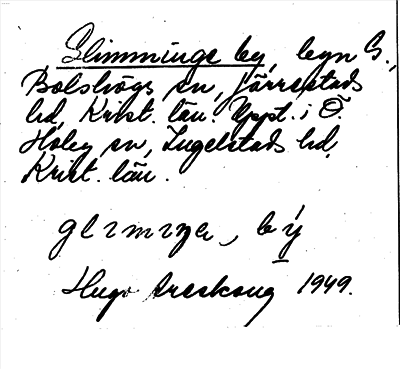 Glimminge by, byn G.,
Bolshögs sn, Järrestads
hd, Krist. län. Uppt. i Ö.
Hoby sn, Ingelstads hd,
Krist. län.
glımıŋe, bý
Hugo Areskoug 1949.